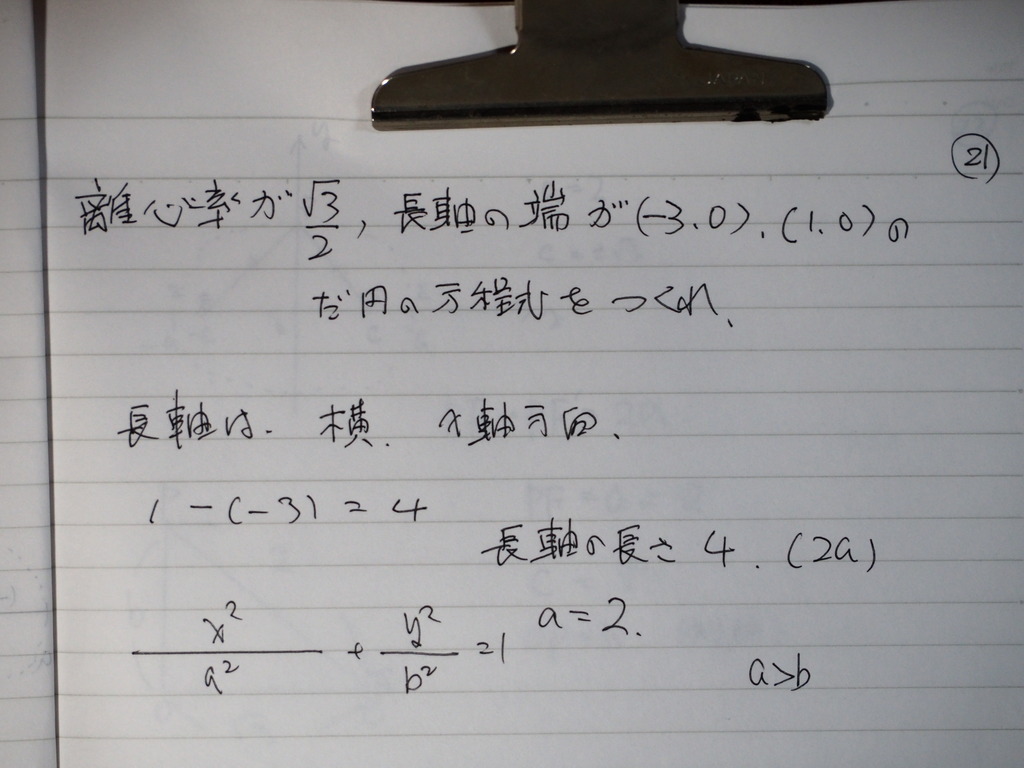 ㉑
離心率が √3/2, 長軸の端が(-3.0).(1.0)の
だ円の方程式をつくれ、
長軸は. 横. x軸方向、
1 - (-3) = 4
長軸の長さ 4. (2a)
x²/a² + y²/b² = 1
a = 2.
a>b